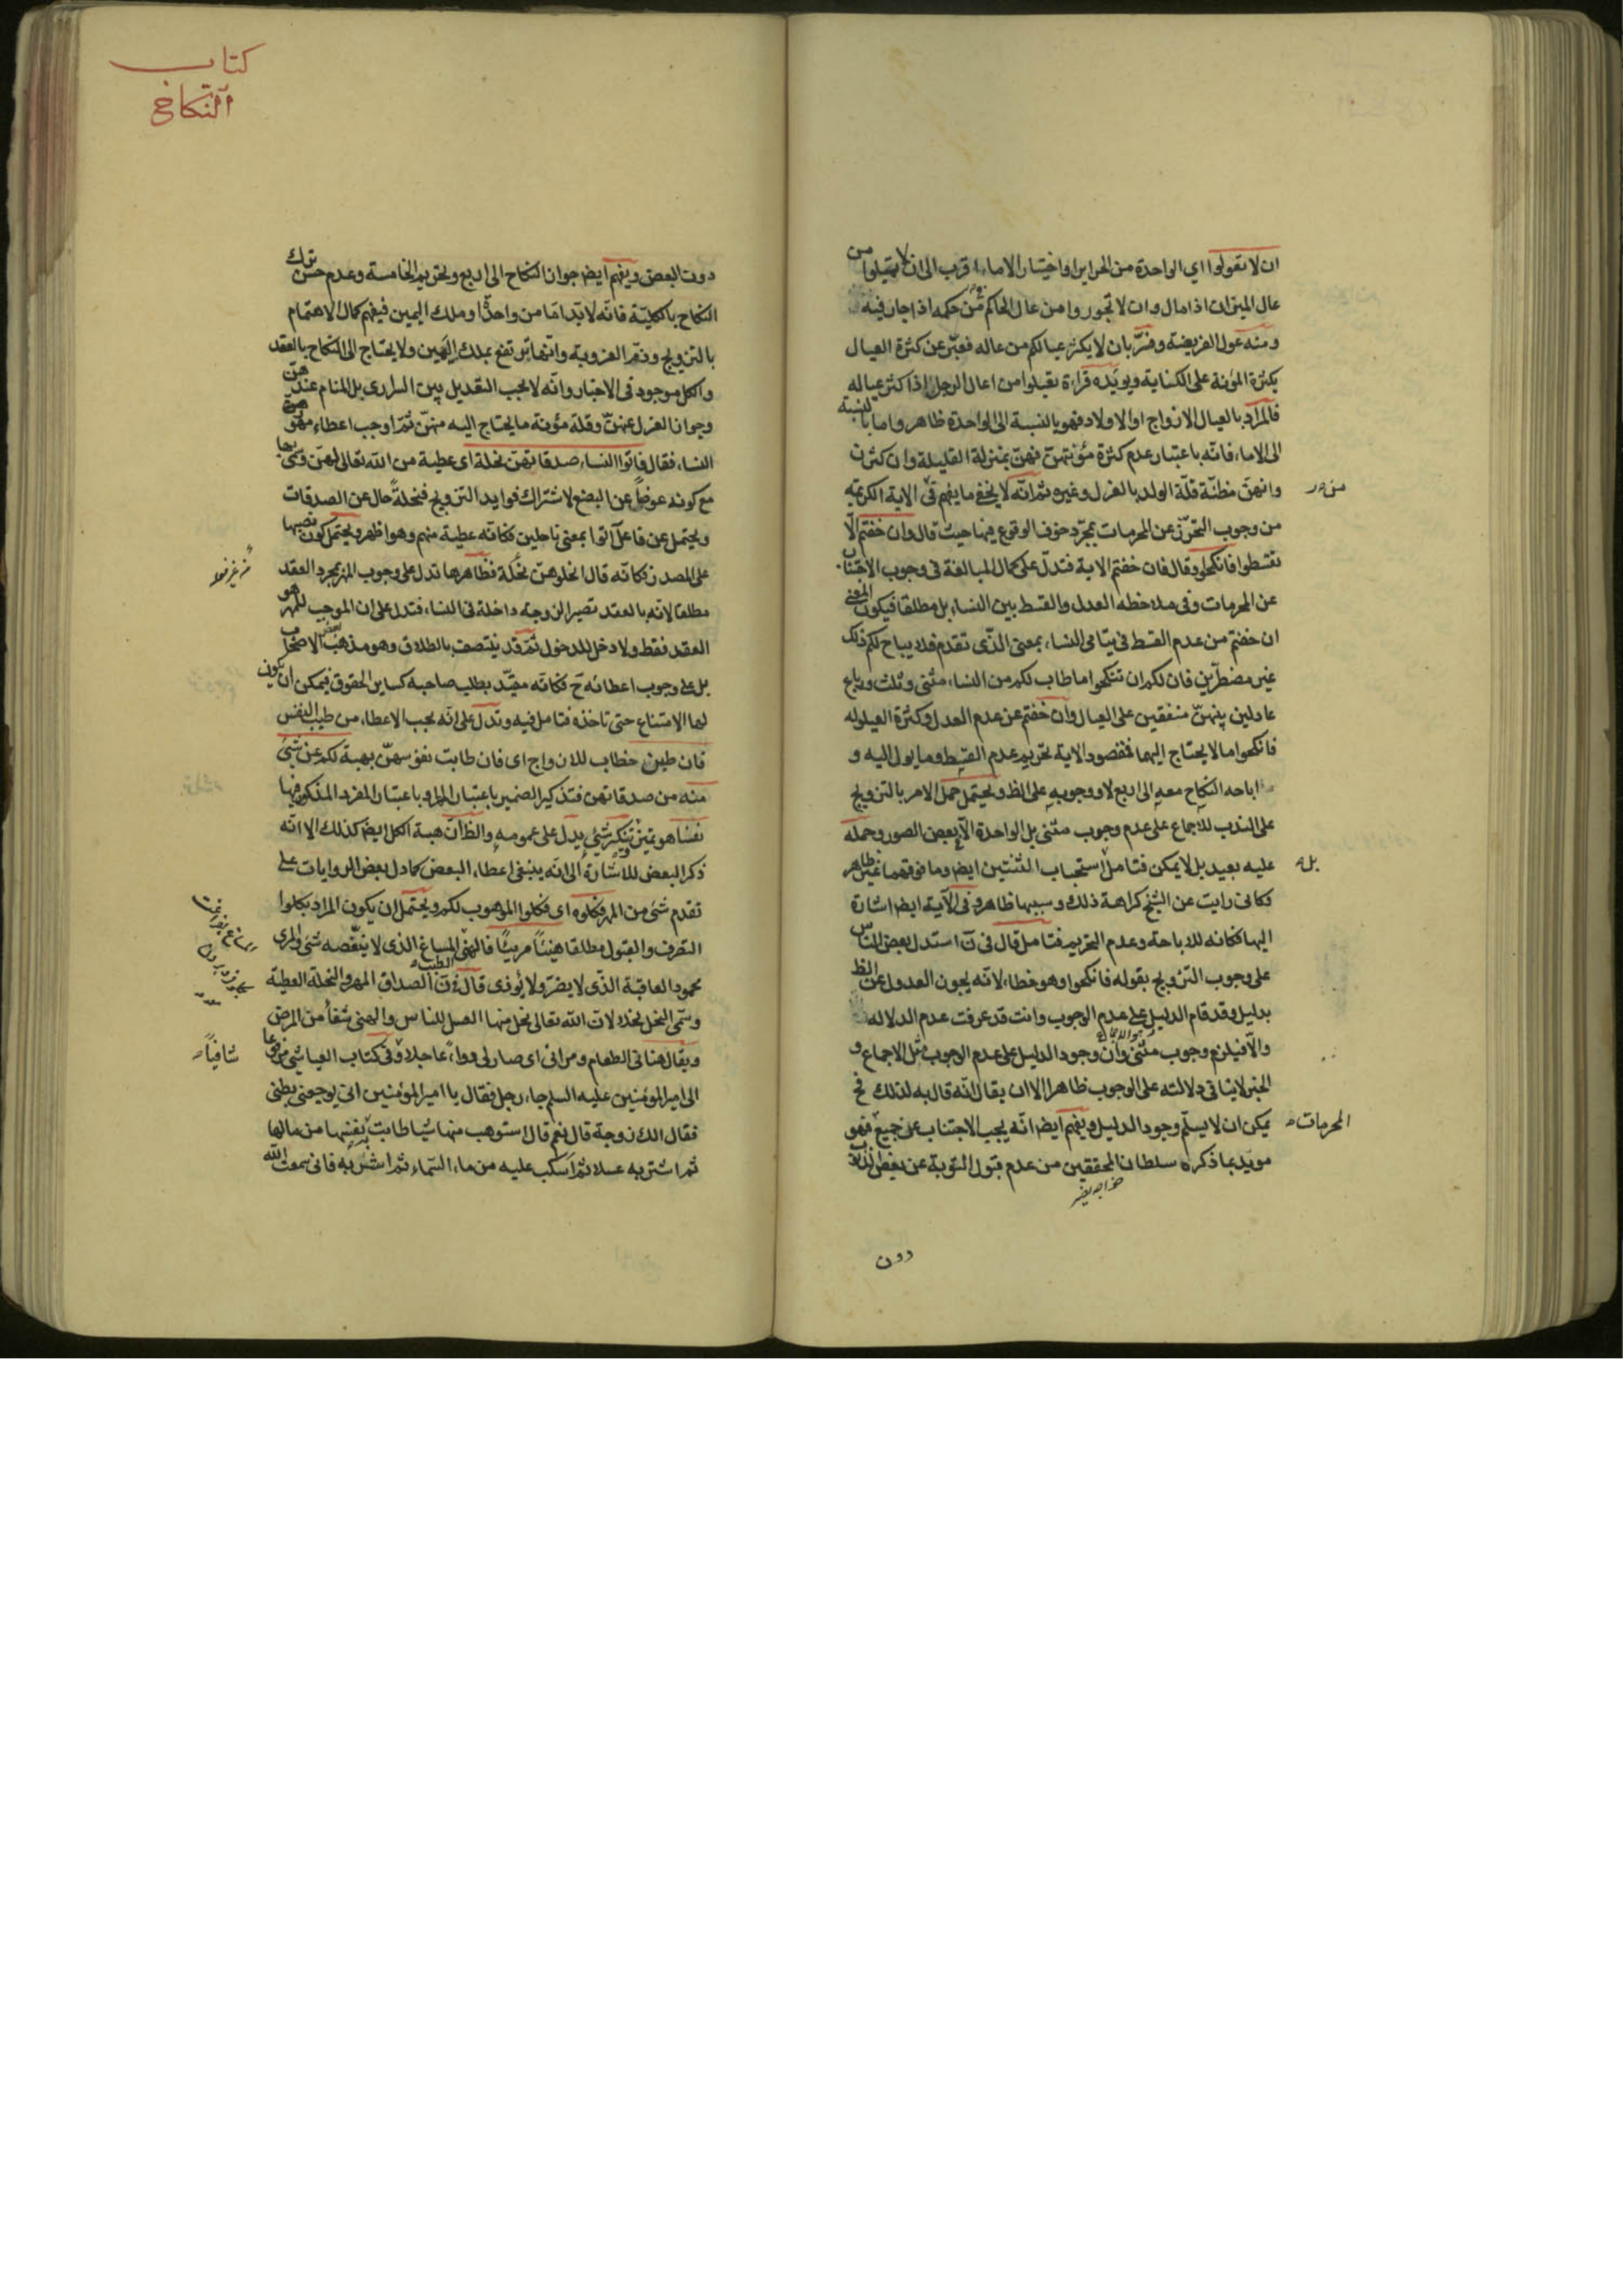 ان لا تعولوا اي الواحدة من الحراير او اختيار الاماء اقرب الى ان لا تميلوا من
عال الميزان اذا مال وان لا تجوروا من عال الحاكم في حكمه اذا جار فيه
ومنه عول الفريضة وفسّر بان لا يكثر عيالكم من عاله فعبّر عن كثرة العيال
بكثرة المؤنة على الكناية ويويّده قراءة تعيلوا من اعال الرجل اذا كثر عياله
فالمراد بالعيال الازواج او الاولاد فهو بالنسبة الى الواحدة ظاهر واما بالنسبة
الى الاماء فانّه باعتبار عدم كثرة مؤنتهنّ فهنّ بمنزلة القليلة وان كثرن
وانهنّ مظنّة قلّة الولد بالعزل وغيره ثم انّه لا يخفى ما يفهم في الاية الكريمة
من وجوب التحرّز عن المحرمات بمجرّد خوف الوقوع فيها حيث قال وان خفتم الّا
تقسطوا فانكحوا وقال فان خفتم الاية فتدلّ على كمال المبالغة في وجوب الاجتناب
عن المحرمات وفي ملاحظه العدل والقسط بين النساء بل مطلقا فيكون المعنى
ان خفتم من عدم القسط في يتامى النساء بمعنى الذّى تقدم فلا يباح لكم ذلك
غير مضطرّين فان لكم ان تنكحوا ما طاب لكم من النساء مثنى وثلث ورباع
عادلين بينهنّ منفقين على العيال وان خفتم عن عدم العدل وكثرة العيلوله
فانكحوا ما لا يحتاج اليهما فمقصود الاية تحريم عدم القسط وما يول اليه و
اباحه النكاح معه الى اربع لا ووجوبه على الظ ويحتمل حمل الامر بالتزويج
على الندب للاجماع على عدم وجوب مثنى بل الواحدة الّا بعض الصور وحمله
عليه بعيد بل لا يمكن فتامل استحباب الثنتين ايضا وما فوقهما غير ظاهر
بل
فكانى رايت عن الشيخ كراهة ذلك وسببها ظاهر وفى الآية ايضا اشارة
اليها فكانه للاباحة وعدم التحريم فتامل قال فى ن استدل بعض الناس
على وجوب التزويج بقوله فانكحوا وهو خطاء لانّه يجوز العدول عن الظ
بدليل وقد قام الدليل على عدم الوجوب وانت قد عرفت عدم الدلاله
والّا فيلزم وجوب مثنى وان وجود الدليل على عدم الوجوب مثل الاجماع و
الخبر لا ينافى دلالته على الوجوب ظاهرا الا ان يقال انّه قال به لذلك فح
يمكن ان لا يسلّم وجود الدليل ويفهم ايضا انّه يجب الاجتناب عن جميع فهو
المحرمات
مويّد بما ذكره سلطان المحققين من عدم قبول التوبة عن بعض الذنوب
دون
كتاب
النكاح
دون البعض ويفهم ايضا جواز النكاح الى اربع وتحريم الخامسة وعدم حسن ترك
النكاح بالكليّة فانّه لا بدّ امّا من واحدة او ملك اليمين فيفهم كمال الاهتمام
بالتزويج وذمّ العزوبة وانّها ترتفع بملك اليمين ولا يحتاج الى النكاح بالعقد
والكل موجود فى الاخبار وانّه لا يجب التعديل بين السرارى بل المنام عندهن
وجواز العزل عنهنّ وقلة مؤنة ما يحتاج اليه منهنّ ثمّ اوجب اعطاء مهورهنّ
النساء فقال فاتوا النساء صدقاتهنّ نحلة اى عطية من اللّه تعالى لهنّ
مع كونه عوضاً عن البضع لاشتراك فوايد التزويج فنحلةً حال عن الصدقات
ويحتمل عن فاعل آتوا بمعنى ناحلين فكانّه عطية منهم وهو اظهر ويحتمل كون نصبها
على المصدر فكانّه قال انحلوهنّ نحلة فظاهرها تدل على وجوب المهر بمجرد العقد
مطلقا لانه بالعقد تصير الزوجة داخلة فى النساء فتدل على ان الموجب للمهر هو
العقد فقط ولا دخل للدخول ثمّ قد ينتصف بالطلاق وهو مذهب بعض الاصحاب
بل على وجوب اعطائه ح فكانّه مقيّد بطلب صاحبه كساير الحقوق فيمكن ان يكون
لها الامتناع حتى تاخذه فتامل فيه وتدل على انّه يجب الاعطاء من طيب النفس
فان طبن خطاب للازواج اى فان طابت نفوسهنّ بهبة لكم عن شئ
منه من صدقاتهن فتذكير الضمير باعتبار المهر او باعتبار المفرد المذكور فيها
نفسا هو تميز تنكير شئ يدل على عمومه والظ ان هبة الكل ايضا كذلك الا انّه
ذكر البعض للاشارة الى انّه ينبغى اعطاء البعض كما دل بعض الروايات على
تقدم شئ من المهر فكلوه اى فكلوا الموهوب لكم ويحتمل ان يكون المراد بكلوا
التصرف والقبول مطلقا هنيئاً مريئاً فالهنئ المساغ الذى لا ينغّصه شئ والمرى
محمود العاقبة الذّى لا يضر ولا يؤذى قال فى ن الصداق المهر والنحلة العطيّة
وسمّى النحل نحلا لان اللّه تعالى نحل منها العسل للناس والهنئ شفاء من المرض
ويقال هنانى الطعام ومرانى اى صار لى دواءً عاجلا وفى كتاب العياشى مرفوعا
شافياً
الى امير المؤمنين عليه السلم جاء رجل فقال يا امير المؤمنين انى يوجعنى بطنى
فقال الك زوجة قال نعم قال استوهب منها شيئا طابت به نفسها من مالها
ثم اشتر به عسلا ثم اسكب عليه من ماء السّماء ثم اشربه فانى سمعت اللّه